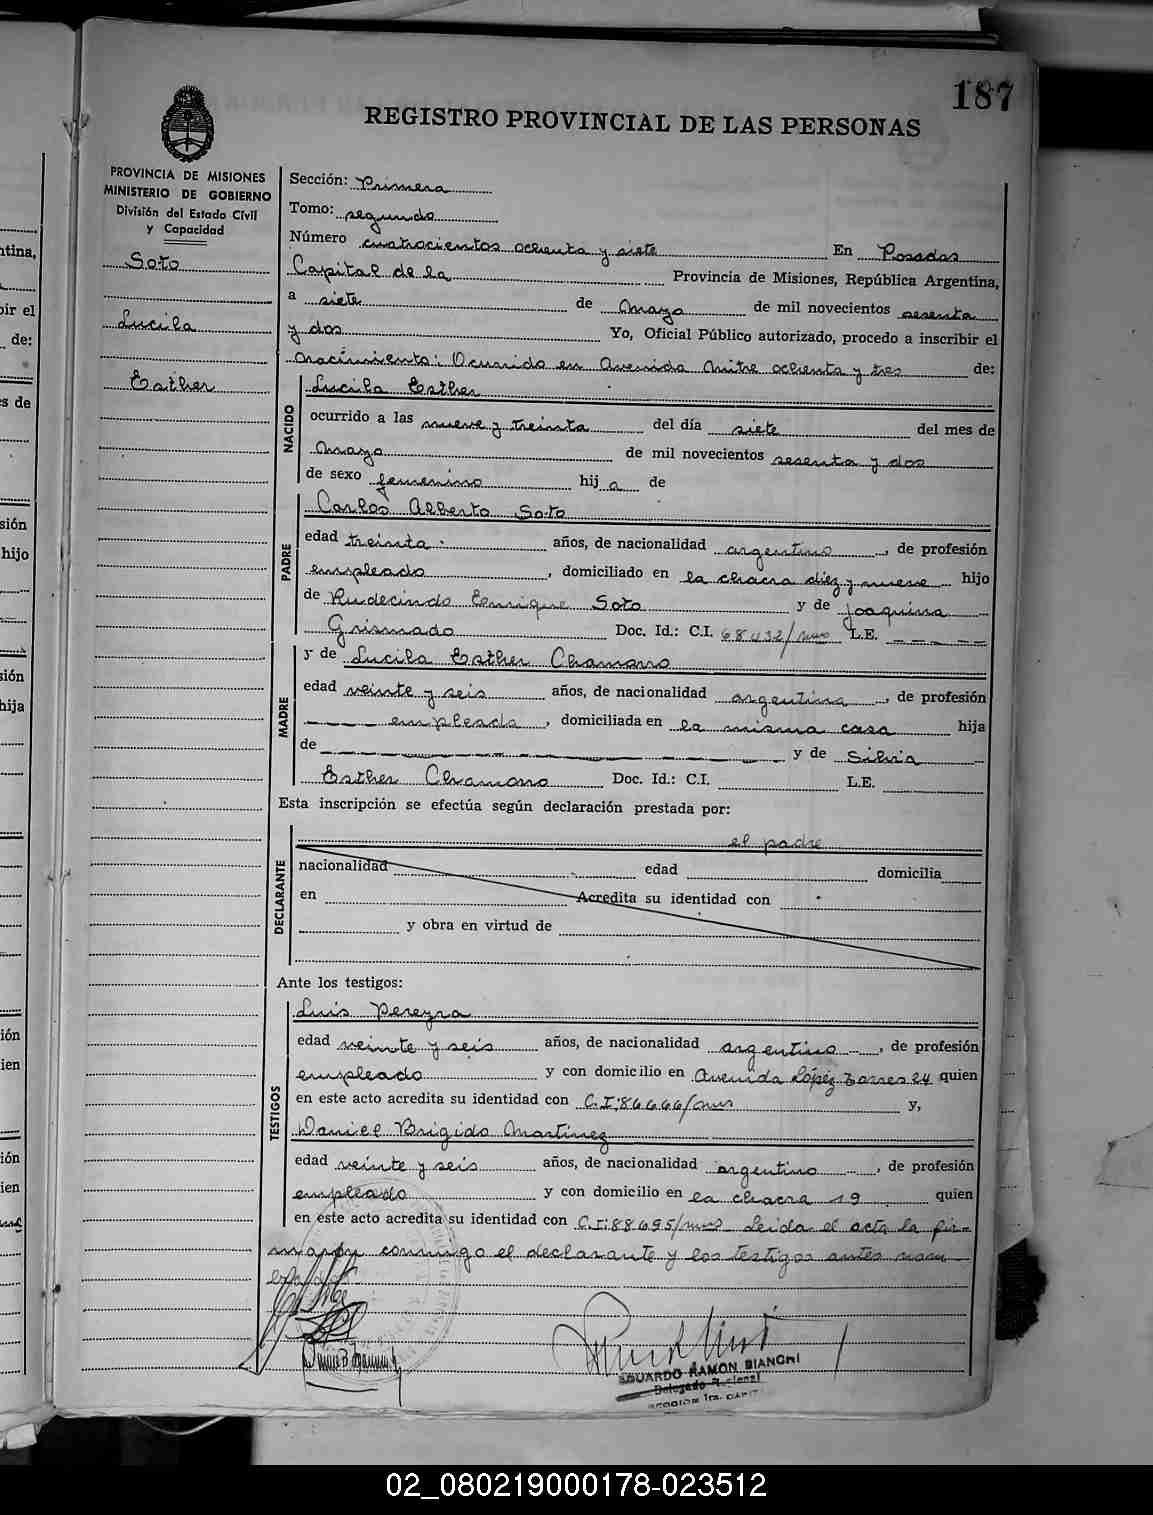 187
REGISTRO PROVINCIAL DE LAS PERSONAS
PROVINCIA DE MISIONES
MINISTERIO DE GOBIERNO
División del Estado Civil
y Capacidad
Soto
Lucila
Esther
Sección: Primera
Tomo: segundo
Número cuatrocientos ochenta y siete En Posadas
Capital de la Provincia de Misiones, República Argentina,
a siete de mayo de mil novecientos sesenta
y dos Yo, Oficial Público autorizado, procedo a inscribir el
nacimiento: Ocurrido en Avenida Mitre ochenta y tres de:
NACIDO
Lucila Esther
ocurrido a las nueve y treinta del día siete del mes de
mayo de mil novecientos sesenta y dos
de sexo femenino hij a de
PADRE
Carlos Alberto Soto
edad treinta años, de nacionalidad argentino, de profesión
empleado, domiciliado en la chacra diez y nueve hijo
de Rudecindo Enrique Soto y de Joaquina
Grismado Doc. Id.: C.I. 68432/mns L.E.
MADRE
y de Lucila Esther Chamorro
edad veinte y seis años, de nacionalidad argentina, de profesión
empleada, domiciliada en la misma casa hija
de y de Silvia
Esther Chamorro Doc. Id.: C.I. L.E.
Esta inscripción se efectúa según declaración prestada por:
DECLARANTE
el padre
nacionalidad edad domicilia
en Acredita su identidad con
y obra en virtud de
Ante los testigos:
TESTIGOS
Luis Pereyra
edad veinte y seis años, de nacionalidad argentino, de profesión
empleado y con domicilio en Avenida López Torres 24 quien
en este acto acredita su identidad con C.I:86666/mns y,
Daniel Brigido Martínez
edad veinte y seis años, de nacionalidad argentino, de profesión
empleado y con domicilio en la chacra 19 quien
en este acto acredita su identidad con C.I:88695/mns Leida el acta la fir-
man conmigo el declarante y los testigos antes nom
EDUARDO RAMON BIANCHI
Delegado
02_080219000178-023512